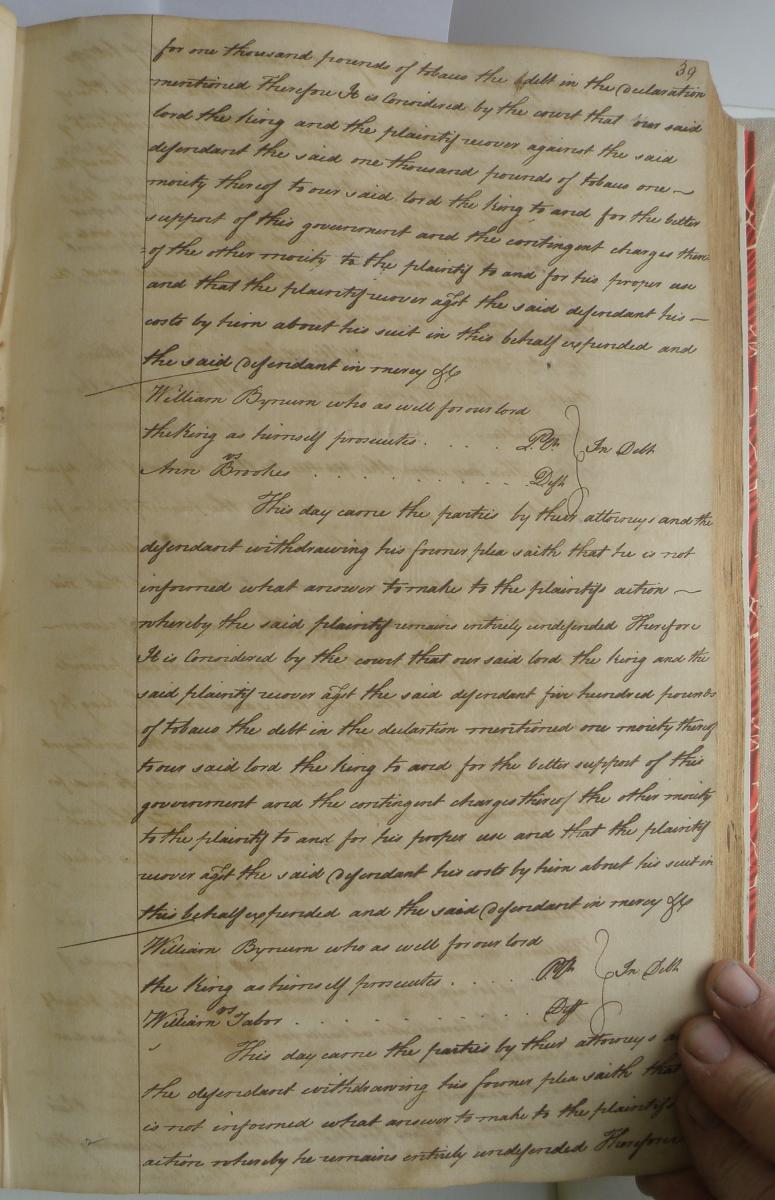 39
for one thousand pounds of tobaco the debt in the Declaration
mentioned Therefore It is Considered by the court that our said
lord the King and the plaintif recover against the said
defendant the said one thousand pounds of tobaco one
moiety thereof to our said lord the king to and for the better
support of this government and the contingent charges there=
=of the other moiety to the plaintif to and for his proper use
and that the plaintif recover agst the said defendant his
costs by him about his suit in this behalf expended and
the said Defendant in mercy &c
William Bynum who as well for our lord
the King as himself prosecutes . . . . . Plt
In Debt
vs
Ann Brookes . . . . . . . . . . . Deft
This day came the parties by their attorneys and the
defendant withdrawing his former plea saith that he is not
informed what answer to make to the plaintifs action
whereby the said plaintif remains entirely undefended Therefore
It is Considered by the court that our said lord the king and the
said plaintif recover agst the said defendant five hundred pounds
of tobaco the debt in the declartion mentioned one moiety thereof
to our said lord the king to and for the better support of this
government and the contingent charges thereof the other moiety
to the plaintif to and for his proper use and that the plaintif
recover agst the said Defendant his costs by him about his suit in
this behalf expended and the said Defendant in mercy &c
William Bynum who as well for our lord
the King as himself prosecutes . . . . Plt
In Debt
vs
William Tabor . . . . . . . . . . Deft
This day came the parties by their attorneys a
the defendant withdrawing his former plea saith that
is not informed what answer to make to the plaintifs
action whereby he remains entirely undefended Therefore